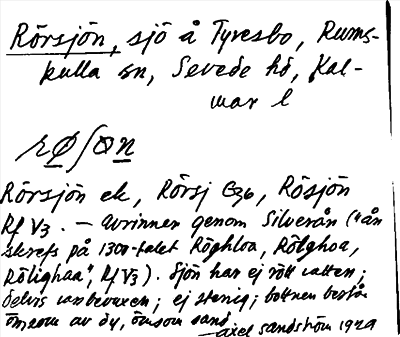 Rörsjön, sjö å Tyresbo, Rums-
kulla sn, Sevede hd, Kal-
mar l
Rörsjön ek, Rörsj G36, Rösjön
Rf V3. — Urinnes genom Silverån ("ån
skrefs på 1300-talet Röghloa, Rölghoa,
Rölighaa", Rf V3). Sjön har ej rött vatten;
delvis vassbevuxen; ej stenig; bottnen består
ömsom av dy, ömsom sand.
Axel Sandström 1929